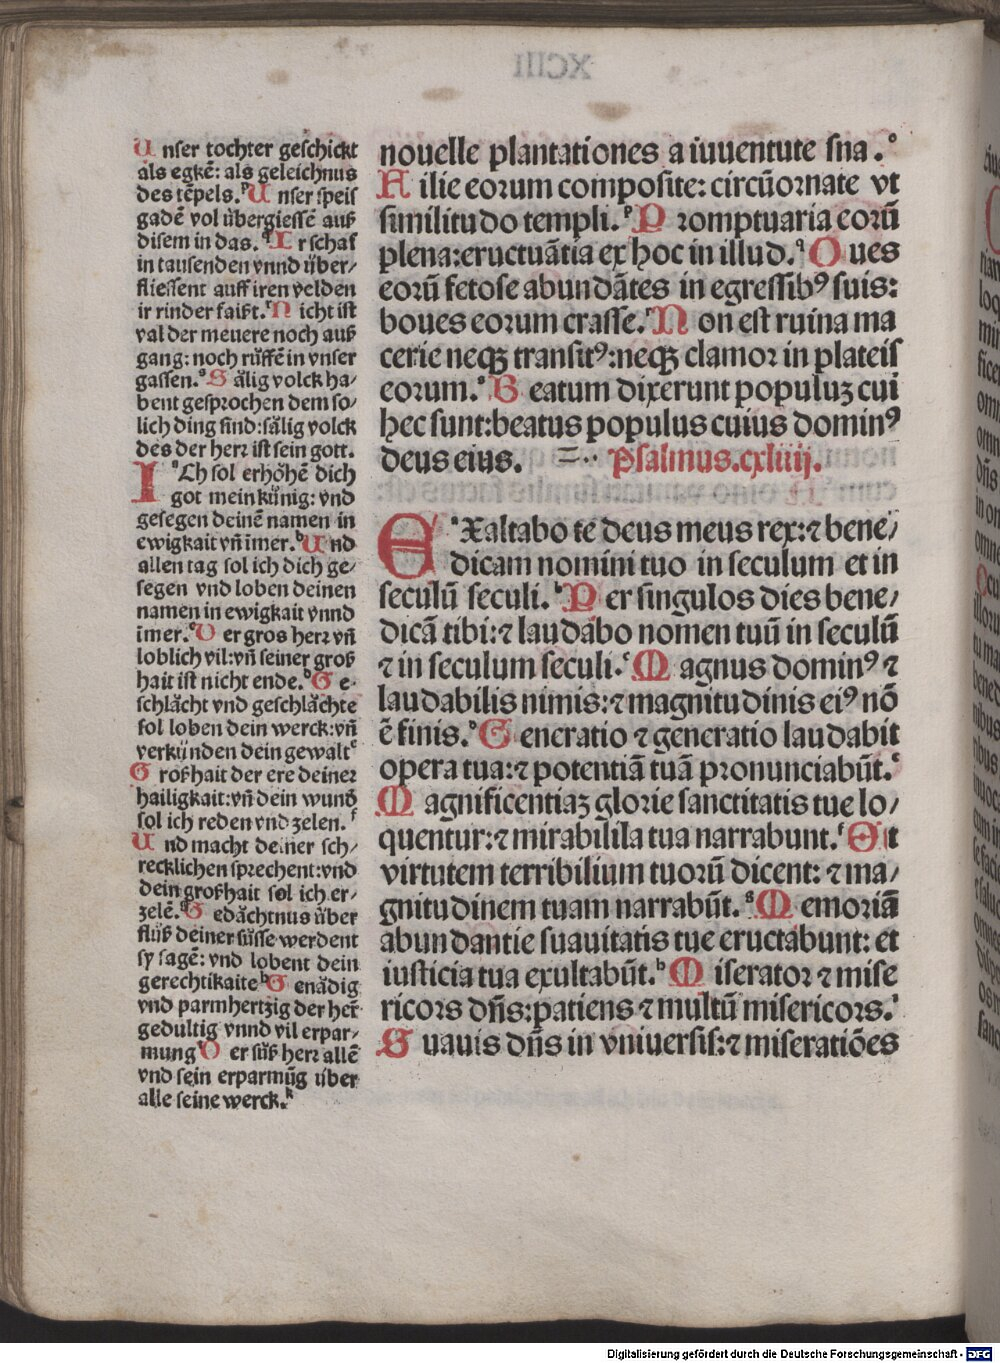 Unser tochter geschickt
als egkē: als geleichnus
des tēpels.ᵖ Unser speis
gadē vol übergiessē auß
disem in das.ᑫ Ir schaf
in tausenden vnnd über/
fliessent auff iren velden
ir rinder faißt.ʳ Nicht ist
val der meuere noch auß
gang: noch rüffē in vnser
gassen.ˢ Sälig volck ha-
bent gesprochen dem so-
lich ding sind: sälig volck
des der herr ist sein gott.
IᵃCh sol erhöhē dich
got mein künig: vnd
gesegen deinē namen in
ewigkait vñ īmer.ᵇ Und
allen tag sol ich dich ge/
segen vnd loben deinen
namen in ewigkait vnnd
īmer.ᶜ Der gros herr vñ
loblich vil: vñ seiner groß
hait ist nicht ende.ᵈ Ge-
schlächt vnd geschlächte
sol loben dein werck: vñ
verkünden dein gewaltᵉ
Großhait der ere deiner
hailigkait: vñ dein wund
sol ich reden vnd zelen.ᶠ
Und macht deiner sch/
recklichen sprechent: vnd
dein großhait sol ich er-
zelē.ᵍ Gedächtnus über
flüß deiner süsse werdent
sy sagē: vnd lobent dein
gerechtikaiteʰ Genädig
vnd parmhertzig der her̄
gedultig vnnd vil erpar-
mungⁱ Der süß herr allē
vnd sein erparmūg über
alle seine werck.ᵏ
nouelle plantationes a iuuentute sna.ᵒ
Filie eorum composite: circūornate vt
similitudo templi.ᵖ Promptuaria eorū
plena: eructuātia ex hoc in illud.ᑫ Oues
eorū fetose abundātes in egressibꝰ suis:
boues eorum crasse.ʳ Non est ruina ma
cerie neqꝫ transitꝰ: neqꝫ clamor in plateis
eorum.ˢ Beatum dixerunt populuꝫ cui
hec sunt: beatus populus cuius dominꝰ
deus eius. Psalmus.cxliiij.
EᵃXaltabo te deus meus rex: ⁊ bene/
dicam nomini tuo in seculum et in
seculū seculi.ᵇ Per singulos dies bene/
dicā tibi: ⁊ laudabo nomen tuū in seculū
⁊ in seculum seculi.ᶜ Magnus dominꝰ ⁊
laudabilis nimis: ⁊ magnitudinis eiꝰ nō
ē finis.ᵈ Generatio ⁊ generatio laudabit
opera tua: ⁊ potentiā tuā pronunciabūt.ᵉ
Magnificentiaꝫ glorie sanctitatis tue lo/
quentur: ⁊ mirabilila tua narrabunt.ᶠ Et
virtutem terribilium tuorū dicent: ⁊ ma/
gnitudinem tuam narrabūt.ᵍ Memoriā
abundantie suauitatis tue eructabunt: et
iusticia tua exultabūt.ʰ Miserator ⁊ mise
ricors dñs: patiens ⁊ multū misericors.ⁱ
Suauis dñs in vniuersis: ⁊ miseratiōes
Digitalisierung gefördert durch die Deutsche Forschungsgemeinschaft - DFG